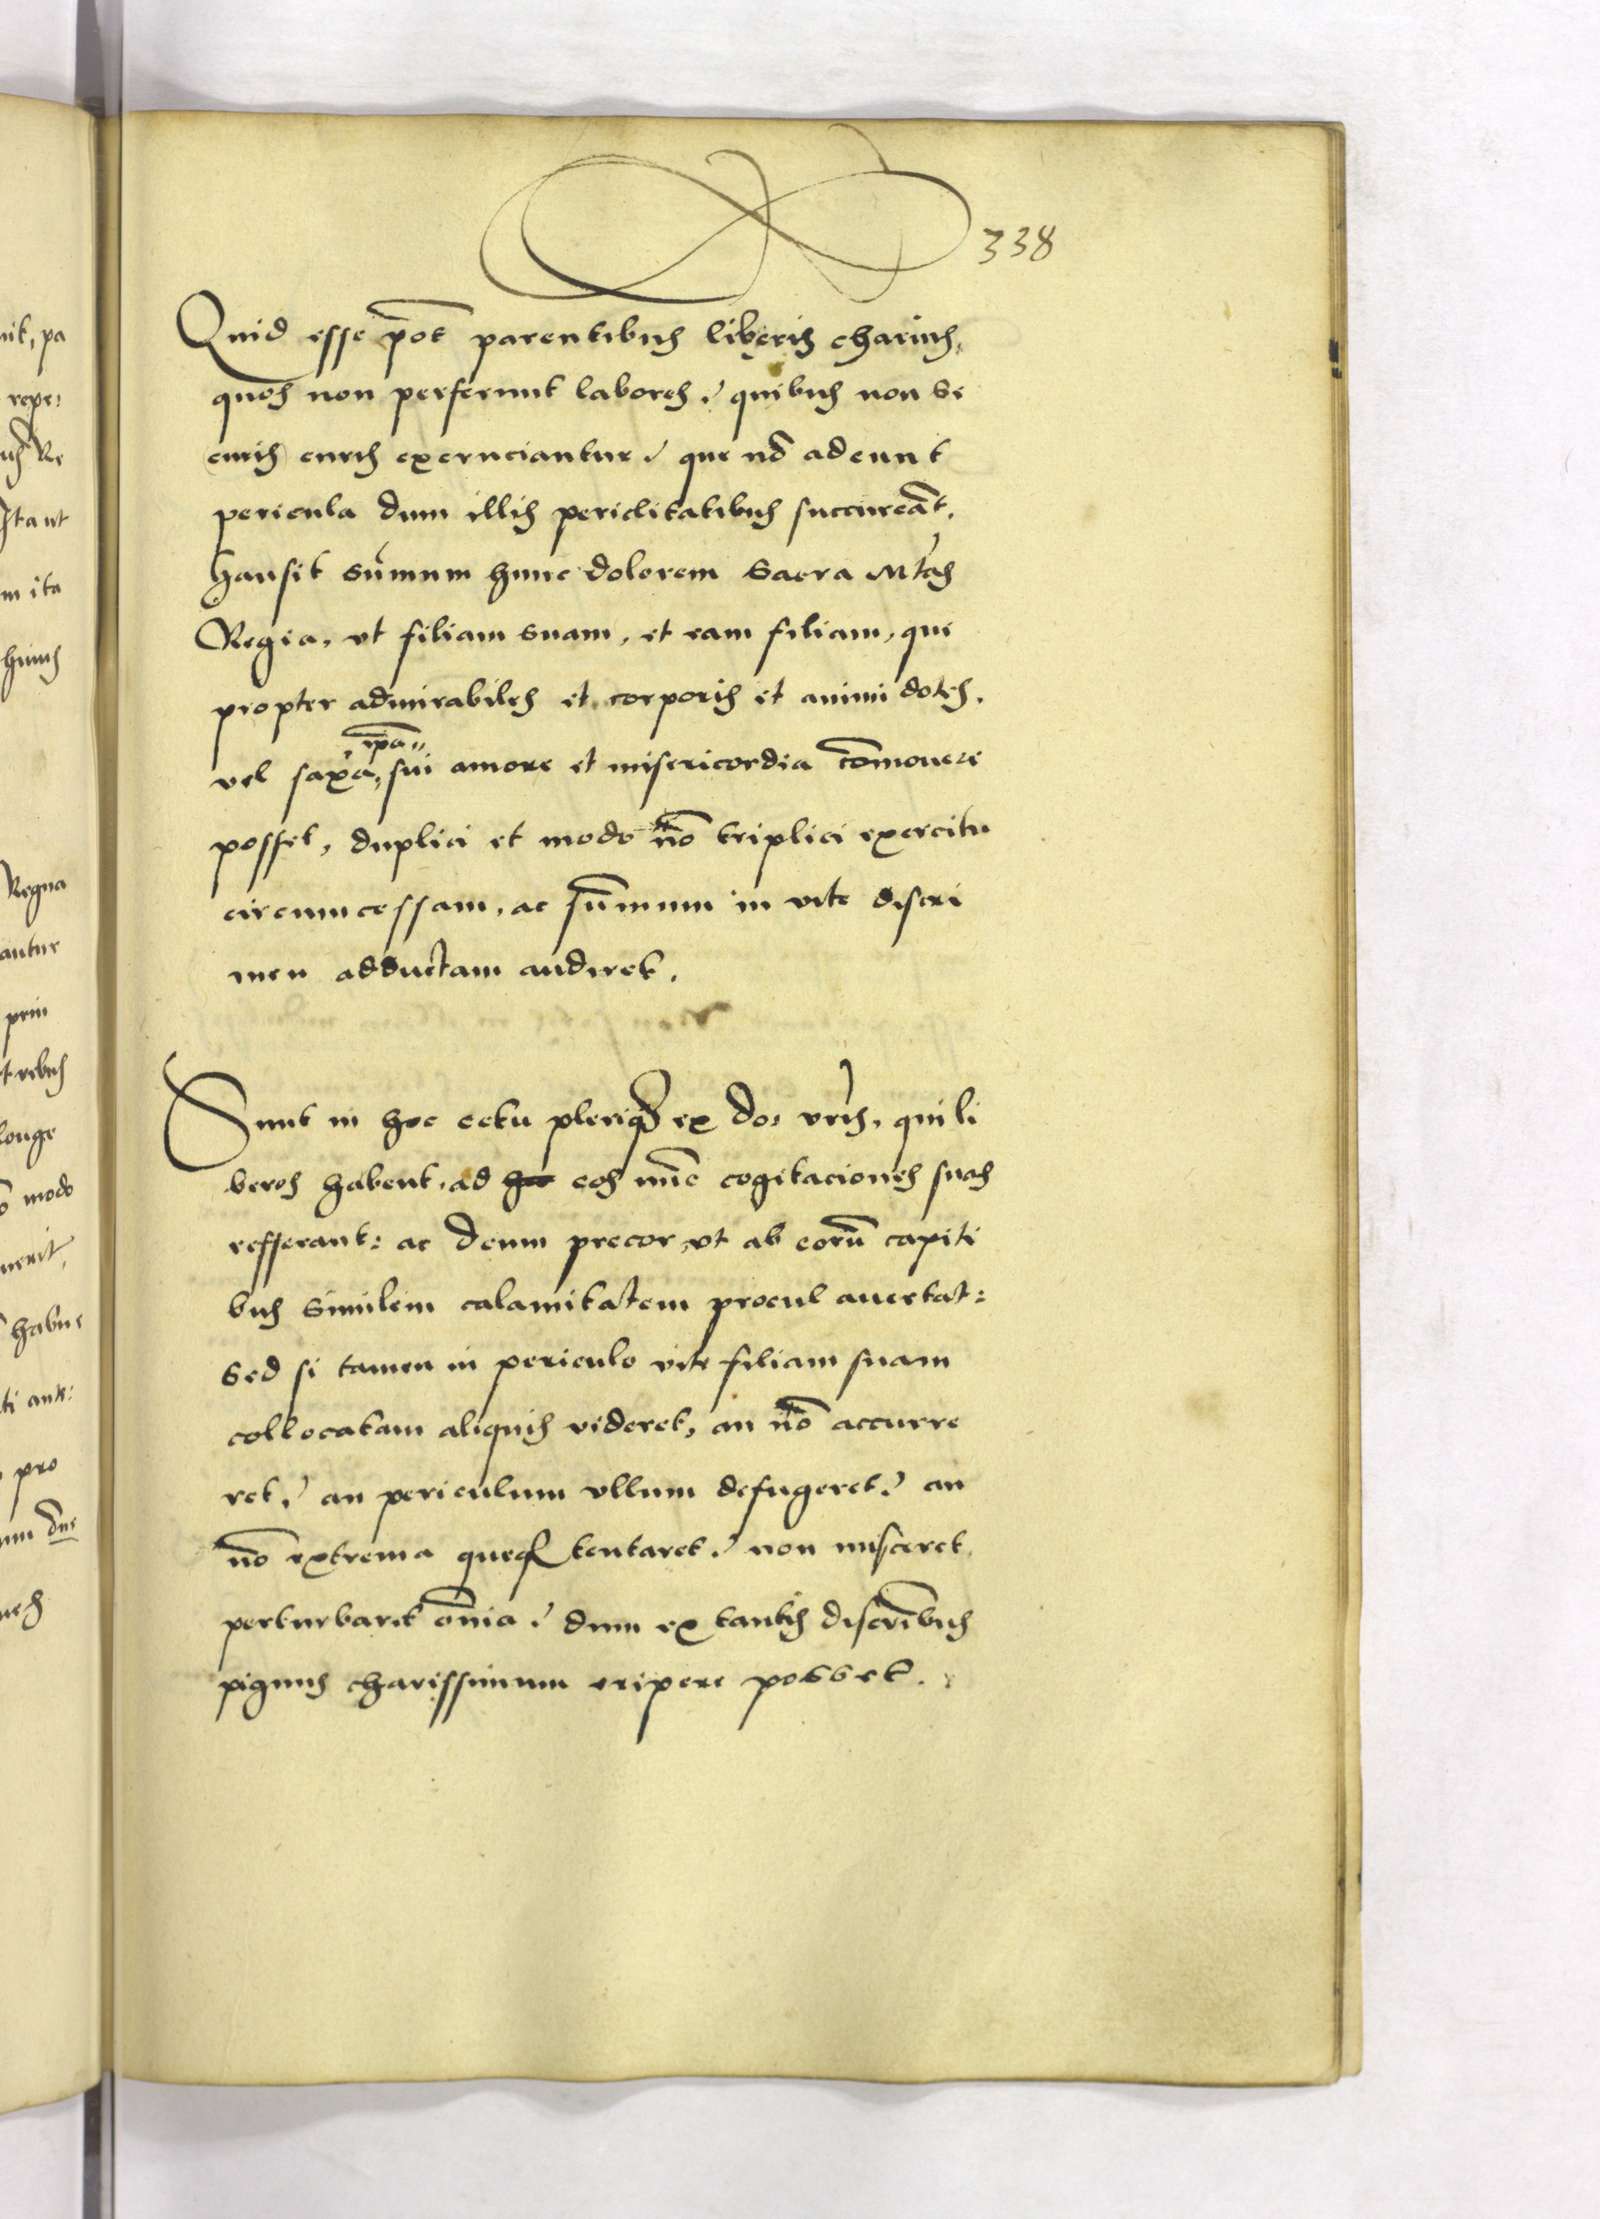 338
Quid esse pōt parentibus liberis charius,
quos non perferunt labores? quibus non se
curis curis exeruciantur? que nō adeunt
pericula dum illis periclitatibus succurrāt.
Hausit sūmum hunc dolorem Sacra Mtas
Regia, vt filiam suam, et eam filiam, que
propter admirabiles et corporis et animi dotes,
ipa
vel saxa, sui amore et misericordia cōmouere
posset, duplici et modo nō triplici exercitu
circumcessam, ac sūmmum in vite discri
men adductam audiret.
Sunt in hoc cetu pleriq3 ex do: vris, qui li
beros habent, ad eos nūc cogitaciones suas
refferant: ac Deum precor, vt ab eorū capiti
bus similem calamitatem procul auertat:
Sed si tamen in periculo vite filiam suam
collocatam aliquis videret, an nō accurre
ret? an periculum vllum defugeret? an
nō extrema queq3 tentaret? non misceret
perturbaret oīnia? dum ex tantis discrībus
pignus charissimum eripere posset.
nit, pa
repe:
us Re
Ita ut
m ita
huius
Regna
antur
prin
t rebus
longe
ō modo
uerit,
habue
ti ante:
pro
um dne
ues